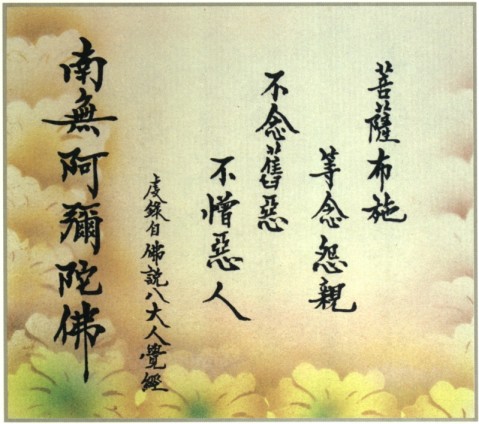 菩薩布施
等念怨親
不念舊惡
不憎惡人
虔錄自佛說八大人覺經
南無阿彌陀佛